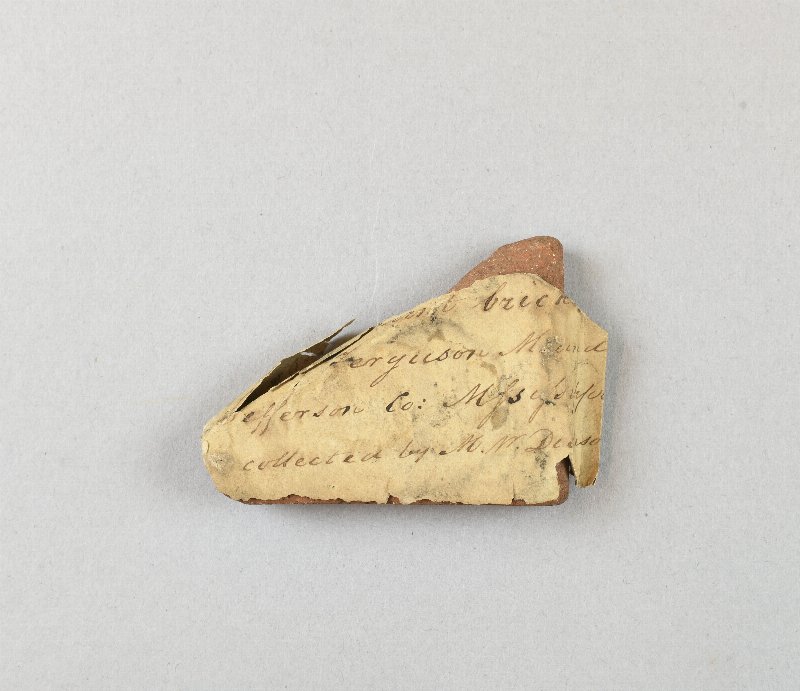 brick
Ferguson Mound
Jefferson Co: Mississip
collected by M. W. Dickso